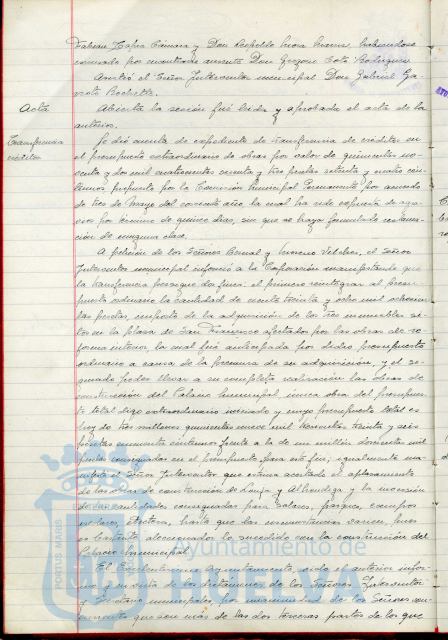 Fabian Tapia Cámara y Don Leopoldo Mora Mora, habiendose
excusado por encontrarse ausente Don Gregorio Soto Rodriguez
Asistió el Señor Interventor municipal Don Gabriel Ga-
Acta
Abierta la sesión fué leida y aprobada el acta de la
anterior.
Transferencia
créditos
Se dió cuenta de expediente de transferencia de créditos en
el presupuesto extraordinario de obras por valor de quinientas no-
venta y dos mil cuatrocientas y tres pesetas setenta y cuatro cén-
timos propuesto por la Comisión Municipal Permanente por acuerdo
de tres de Mayo del corriente año, la cual ha sido expuesta de agra-
vios por término de quince dias, sin que se haya formulado reclama-
ción de ninguna clase.
A petición de los Señores Bernal y Moreno Vilches, el Señor
Interventor municipal informó a la Corporación manifestando que
la transferencia persigue dos fines: el primero reintegrar al presu-
puesto ordinario la cantidad de ciento treinta y ocho mil ochocien-
tas pesetas, importe de la adquisición de los tres inmuebles si-
tos en la plaza de San Francisco afectados por las obras de re-
forma interior, la cual fué anticipada por dicho presupuesto
ordinario a causa de la premura de su adquisición, y el se-
gundo poder llevar a su completa realización las obras de
construcción del Palacio Municipal, única obra del presupues-
to total digo extraordinario iniciado y cuyo presupuesto total es
hoy de tres millones quinientas nueve mil trescientas treinta y seis
pesetas cincuenta céntimos frente a la de un millón doscientas mil
pesetas consignadas en el presupuesto para este fin; igualmente ma-
nifestó el Señor Interventor que estima acertado el aplazamiento
de las obras de construcción de Lonja y Alhondiga y la inversión
de las cantidades consignadas para Solares, parques, campos
escolares, etcétera, hasta que las circunstancias varien, pues
es bastante aleccionador lo sucedido con la construcción del
Palacio Municipal.
El Excelentísimo Ayuntamiento, oido el anterior infor-
me y en vista de los dictámenes de los Señores Interventor
y Secretario municipales, por unanimidad de los Señores con-
currentes que son más de las dos terceras partes de los que
Ayuntamiento de
HUELVA
PORTUS MARIS